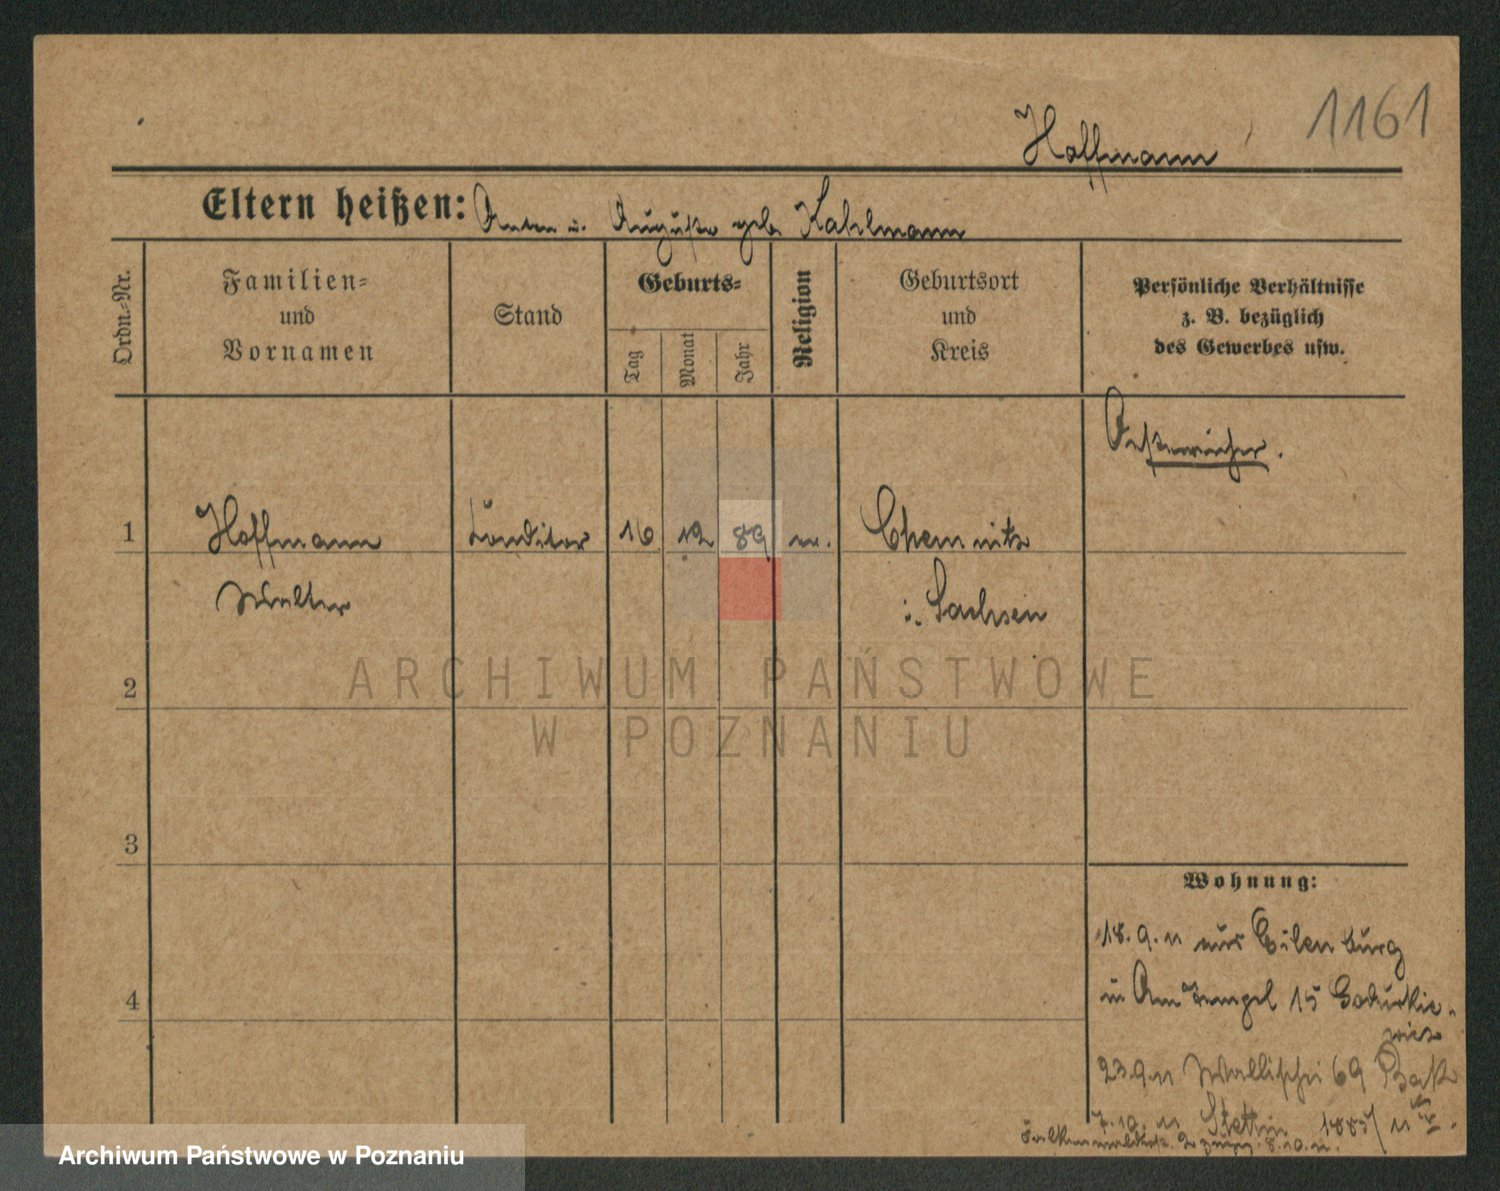 1161
Hoffmann
Eltern heißen: Anton u. Auguste geb. Kahlmann
Ordn.-Nr.
Familien-
und
Vornamen
Stand
Geburts-
Tag
Monat
Jahr
Religion
Geburtsort
und
Kreis
Persönliche Verhältnisse
z. B. bezüglich
des Gewerbes usw.
Oesterreicher.
1 Hoffmann Konditor 16 12 89 Chemnitz
Walter i. Sachsen
2
3
4
Wohnung:
18. 9. 11 aus Eilenburg
in Am Tempel 15
23 9 11 Wallischei 69
7. 10. 11 Stettin 1885/11
8. 10. 11.
ARCHIWUM PAŃSTWOWE
W POZNANIU
Archiwum Państwowe w Poznaniu